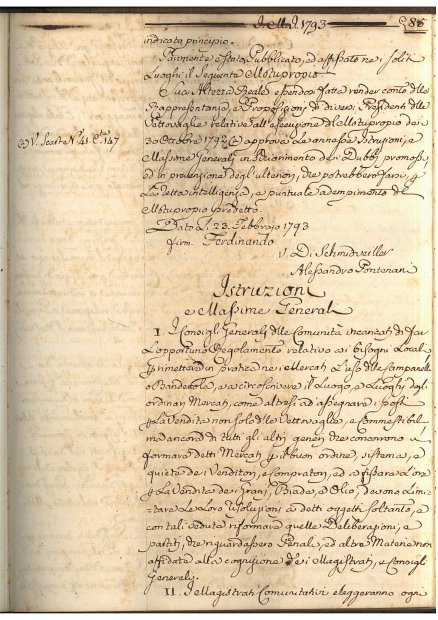 I. M. I. 1793
88
indicato principio.
Parimente è stato Pubblicato, ed affissato nei soliti
Luoghi il seguente Motuproprio
Sua Altezza Reale essendosi fatte render conto delle
Rappresentanze, e Proposizioni di diversi Presidenti delle
Vettovaglie relative all'esecuzione del Motuproprio de'
(a) V. Scart. N.° 41. C.ta 147
30 Ottobre 1792 (a) approva le annesse Istruzioni, e
Massime Generali in schiarimento dei Dubbj promossi,
ed in prevenzione degl'ulteriori, che potrebbero farsi, p
La retta intelligenza, e puntuale adempimento del
Motuproprio predetto.
Dato li 23. Febbrajo 1793
firm. Ferdinando
V. Di Schmidveiller
Alessandro Pontenani
Istruzioni
e Massime Generali
I. I Consigli Generali delle Comunità incaricati di far
L'opportuno Regolamento relativo ai bisogni Locali
p rimettere in pratica nei Mercati L'uso delle Campanelle
o Banderole, e a circoscrivere il Luogo, e Luoghi degl'
ordinari Mercati, come altresì ad assegnare i posti
p La Vendita non solo delle Vettovaglie, e Commestibili
ma ancora di tutti gli altri generi che concorrono a
formare detti Mercati p il buon ordine, sistema, e
quiete dei Venditori, e Compratori, ed a fissare L'ora
p La Vendita dei Grani, Biade, e Olio, devono Limi=
tare Le Loro risoluzioni a detti oggetti soltanto, e
con tal veduta riformare quelle Deliberazioni, e
partiti, che riguardassero Penali, ed altre Materie non
affidate alla cognizione dei Magistrati, e Consigli
Generali.
II. I Magistrati Comunitativi eleggeranno ogni